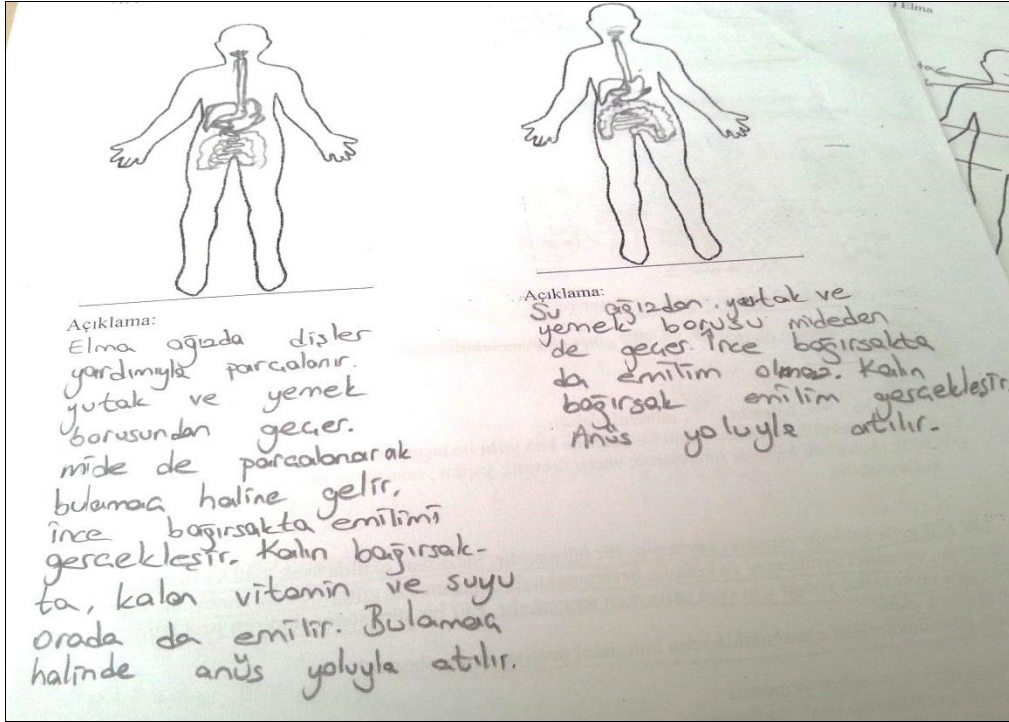 Açıklama:
Elma ağızda dişler
yardımıyla parçalanır.
yutak ve yemek
borusundan geçer.
mide de parçalanarak
bulamaç haline gelir.
ince bağırsakta emilimi
gerçekleşir. Kalın bağırsak-
ta, kalan vitamin ve suyu
orada da emilir. Bulamaç
halinde anüs yoluyla atılır.
Açıklama:
Su ağızdan yutak ve
yemek borusu mideden
de geçer. İnce bağırsakta
da emilim olmaz. Kalın
bağırsak emilim gerçekleşir
Anüs yoluyla atılır.
Elma